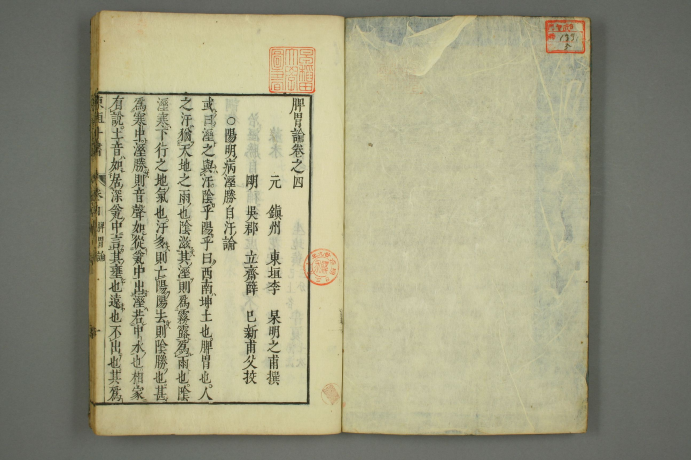 脾胃論卷之四
元 鎮州 東垣李 杲明之甫撰
明 吳郡 立齋薛 己新甫父挍
○陽明病溼勝自汗論
或曰溼之與汗陰乎陽乎曰西南坤土也脾胃也人
之汗猶天地之雨也陰滋其溼則爲霧露爲雨也陰
溼寒下行之地氣也汗多則亡陽陽去則陰勝也甚
爲寒中溼勝則音聲如從瓮中出溼若中水也相家
有說土音如居深瓮中言其壅也遠也不出也其爲
東垣十書
卷四 脾胃論